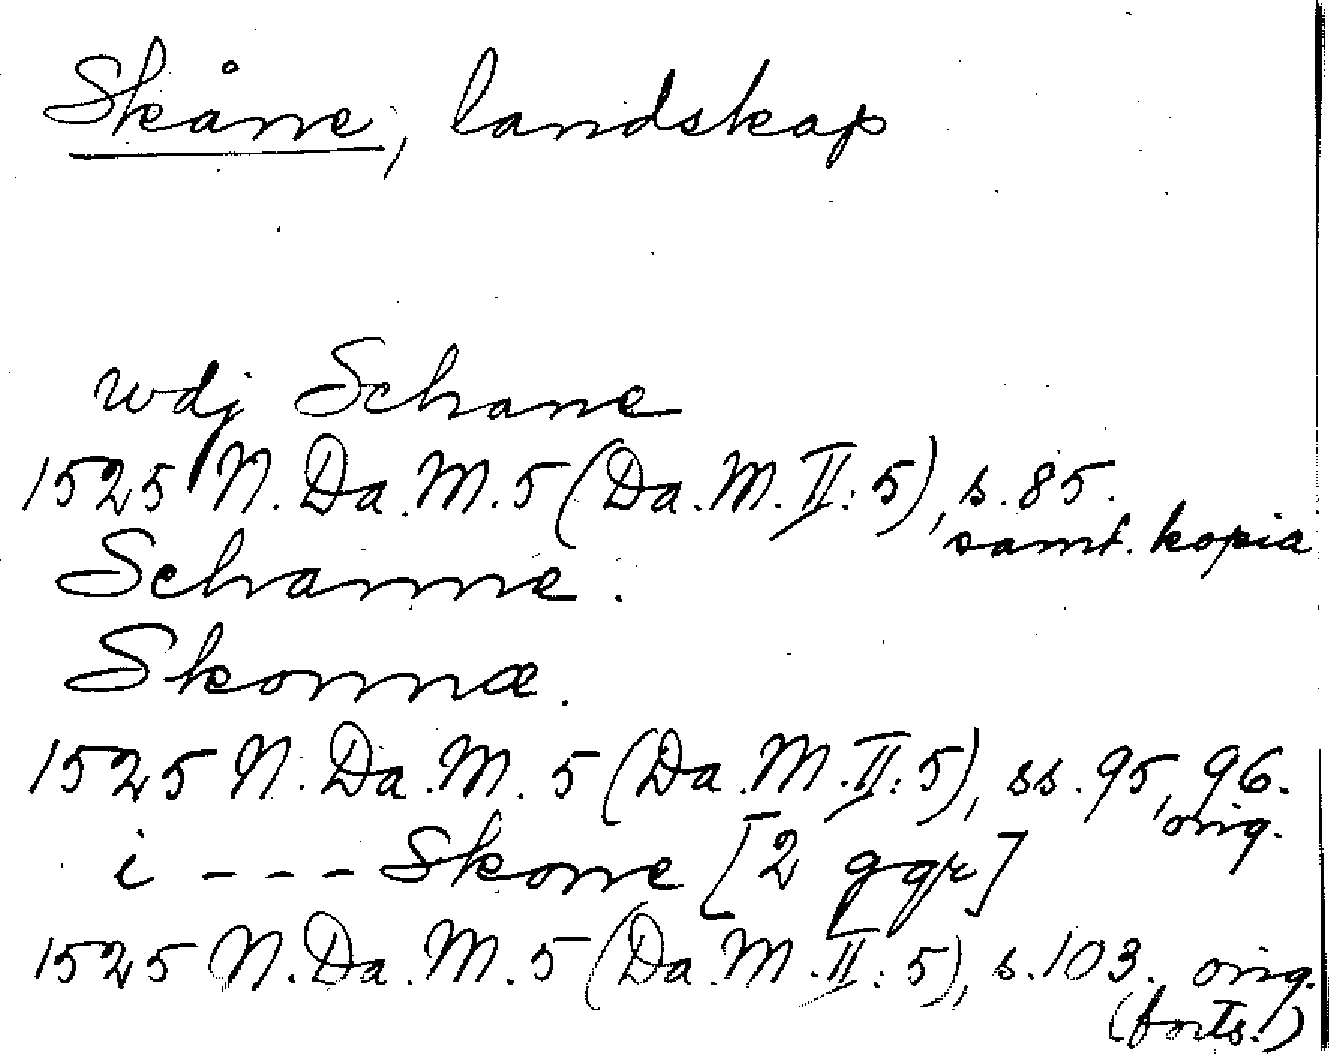 Skåne, landskap
wdj Schane
1525 N. Da. M. 5 (Da. M. II: 5), s. 85.
samt. kopia
Schanne.
Skonnæ.
1525 N. Da. M. 5 (Da. M. II: 5), ss. 95, 96.
orig.
i --- Skone [2 ggr]
1525 N. Da. M. 5 (Da. M. II: 5), s. 103. orig.
(forts.)